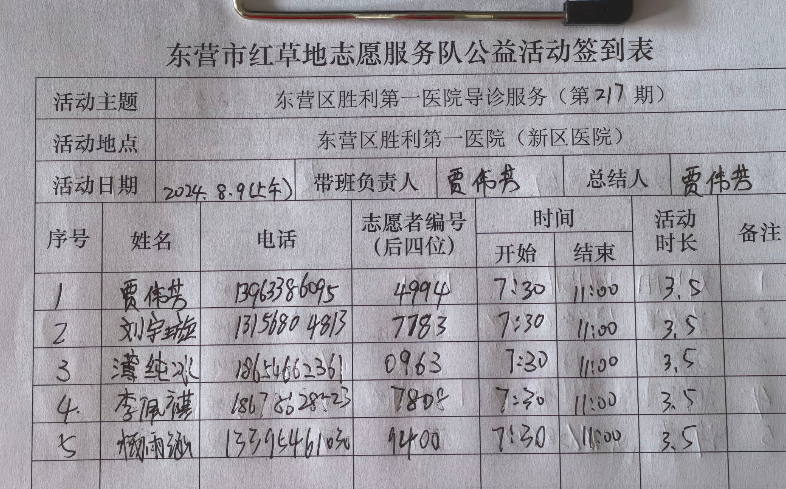 东营市红草地志愿服务队公益活动签到表
活动主题 东营区胜利第一医院导诊服务（第217期）
活动地点 东营区胜利第一医院（新区医院）
活动日期 2024.8.9(上午) 带班负责人 贾伟芳 总结人 贾伟芳
序号 姓名 电话 志愿者编号（后四位） 时间 开始 结束 活动时长 备注
1 贾伟芳 13963386095 4994 7:30 11:00 3.5
2 刘宇 13156804813 7783 7:30 11:00 3.5
3 纯冰 18654662361 0963 7:30 11:00 3.5
4. 李佩祺 18678628523 7808 7:30 11:00 3.5
5 杨雨 13395461030 9400 7:30 11:00 3.5